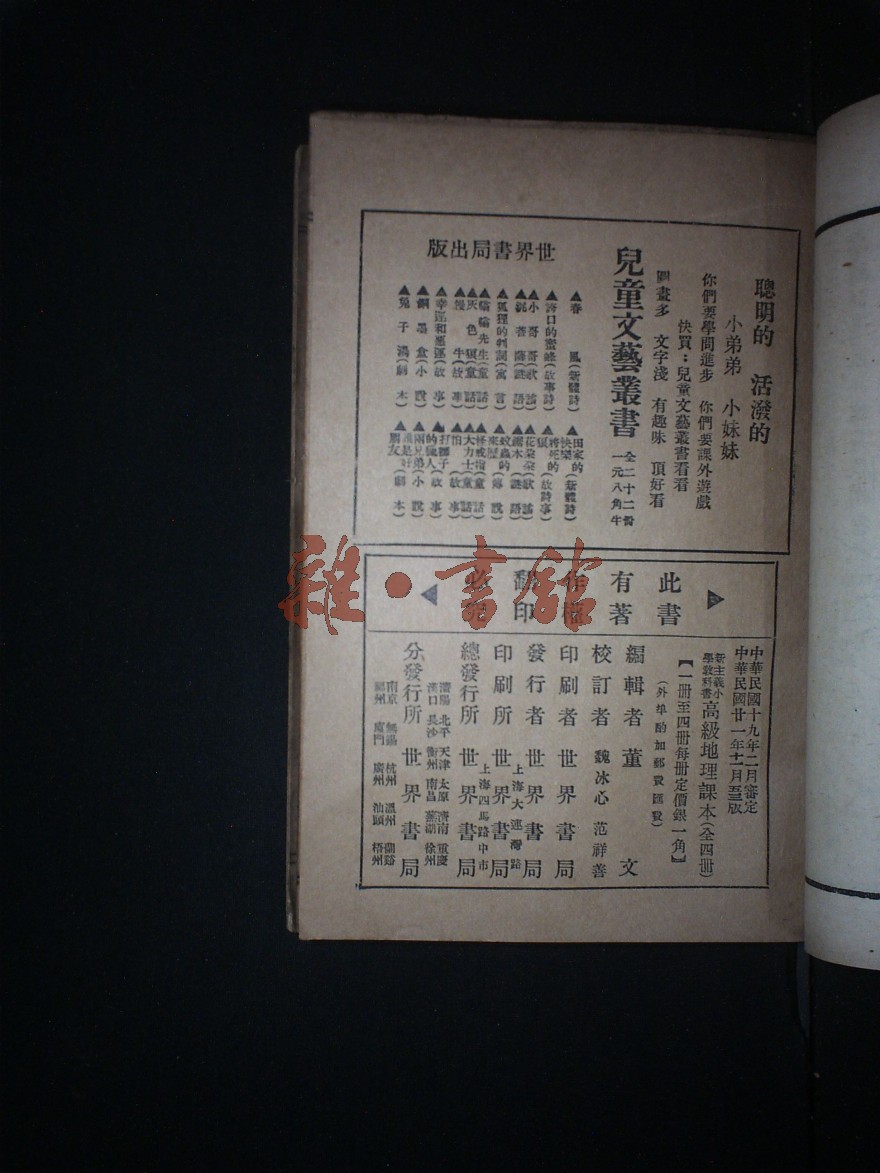 聰明的 活潑的
小弟弟 小妹妹
你們要學問進步 你們要課外遊戲
快買：兒童文藝叢書看看
圖畫多 文字淺 有趣味 頂好看
兒童文藝叢書
全二十二册
一元八角半
世界書局出版
▲春 風(新體詩)
田家的快樂(新體詩)
▲誇口的蜜蜂(故事詩)
將死的(故事詩)
▲小哥哥(歌謠)
花朵朵(歌謠)
(謎語)
(謎語)
▲狐狸的判詞(寓言)
蚊蟲的來歷(傳說)
▲貓貓先生(童話)
怪戒指(童話)
▲灰色(童話)
大力士(童話)
▲幸運和惡運(故事)
打獅子的獵人(故事)
▲銅墨盒(小說)
兩兄弟(小說)
▲兔子湯(劇本)
誰是好朋友(劇本)
此書有著作權翻印必究
中華民國十九年二月審定
中華民國廿一年十一月三版
新主義小學教科書 高級地理課本(全四冊)
【一冊至四冊每冊定價銀一角】
(外埠酌加郵費匯費)
編輯者 董文
校訂者 魏冰心 范祥善
印刷者 世界書局
發行者 世界書局
上海大連灣路
印刷所 世界書局
上海四馬路中市
總發行所 世界書局
瀋陽 北平 天津 太原 濟南 重慶
漢口 長沙 衢州 南昌 蕪湖 徐州
分發行所 世界書局
南京 無錫 杭州 溫州 蘭谿
廈門 廣州 汕頭 梧州
雜·書館